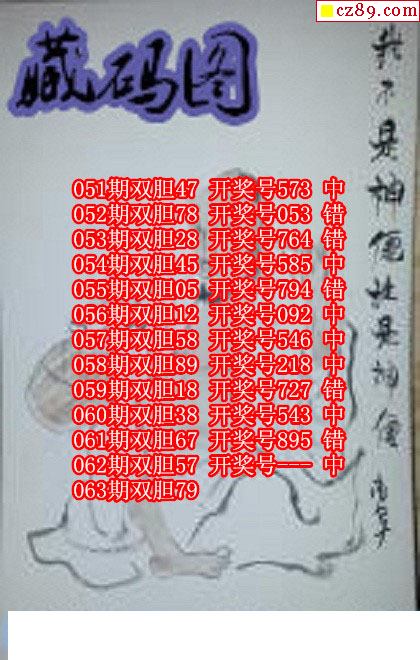 cz89.com
藏码图
051期双胆47 开奖号573 中
052期双胆78 开奖号053 错
053期双胆28 开奖号764 错
054期双胆45 开奖号585 中
055期双胆05 开奖号794 错
056期双胆12 开奖号092 中
057期双胆58 开奖号546 中
058期双胆89 开奖号218 中
059期双胆18 开奖号727 错
060期双胆38 开奖号543 中
061期双胆67 开奖号895 错
062期双胆57 开奖号--- 中
063期双胆79
我不是神仙谁是神仙